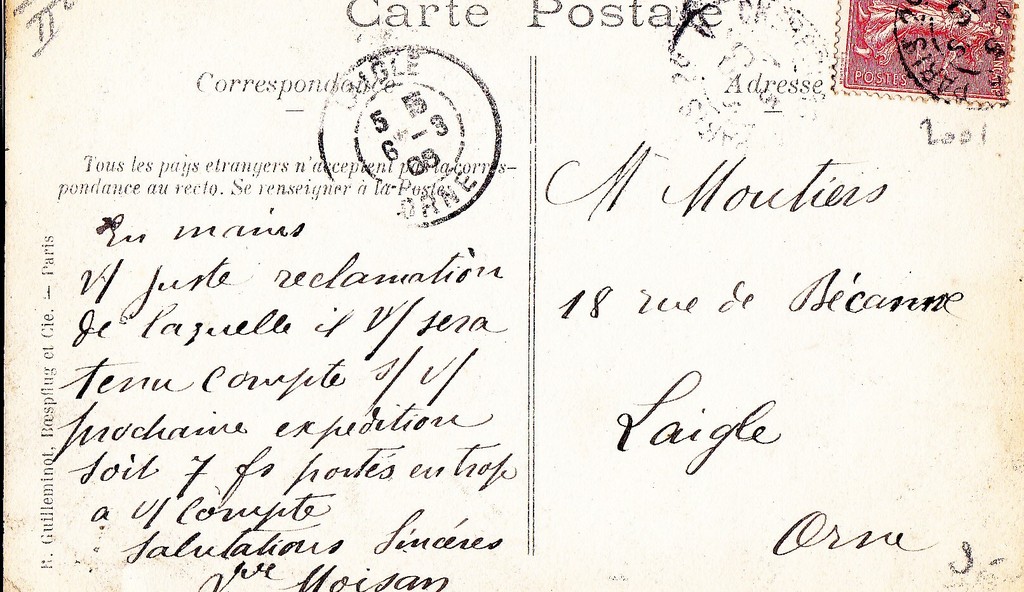 Carte Postale
Correspondance
Adresse
Tous les pays etrangers n'acceptent pas la corres-
pondance au recto. Se renseigner à la Poste.
R. Guilleminot, Bœspflug et Cie. — Paris
En mains
V/ juste reclamation
de laquelle il V/ sera
tenu compte s/ V/
prochaine expedition
soit 7 fs portés en trop
a V/ compte
Salutations Sincéres
Vve Moisan
M Moutiers
18 rue de Bécanne
Laigle
Orne
LAIGLE
ORNE
POSTES
PARIS